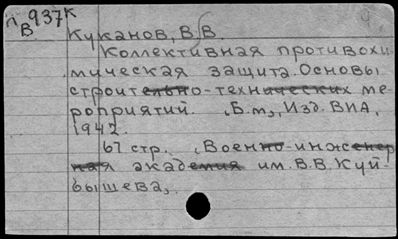 П 937к
В
Куканов, В.В.
Коллективная противохи-
мическая защита. Основы
строительно-технических ме-
роприятий. [Б.м., Изд. ВИА,
1942.
67 стр. (Военно-инженер
ная академия им. В.В. Куй-
бышева).